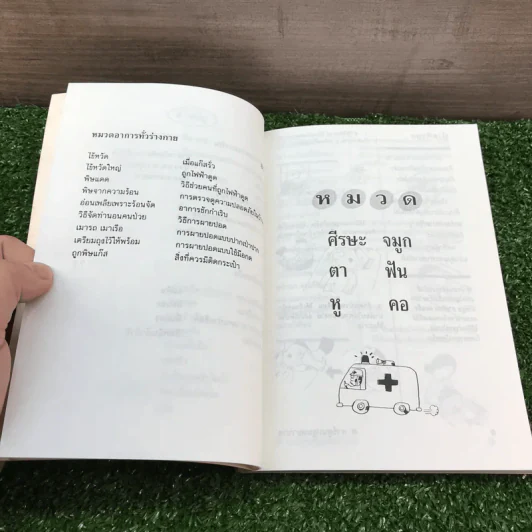 หมวดอาการทั่วร่างกาย
ไข้หวัด
ไข้หวัดใหญ่
พิษแดด
พิษจากความร้อน
อ่อนเพลียเพราะร้อนจัด
วิธีจัดท่านอนคนป่วย
เมารถ เมาเรือ
เตรียมถุงไว้ให้พร้อม
ถูกพิษแก๊ส
เมื่อแก๊สรั่ว
ถูกไฟฟ้าดูด
วิธีช่วยคนที่ถูกไฟฟ้าดูด
การตรวจดูความปลอดภัย
อาการชักกำเริบ
วิธีการผายปอด
การผายปอดแบบปากเป่าปาก
การผายปอดแบบใช้มือกด
สิ่งที่ควรมีติดกระเป๋า
หมวด
ศีรษะ จมูก
ตา ฟัน
หู คอ